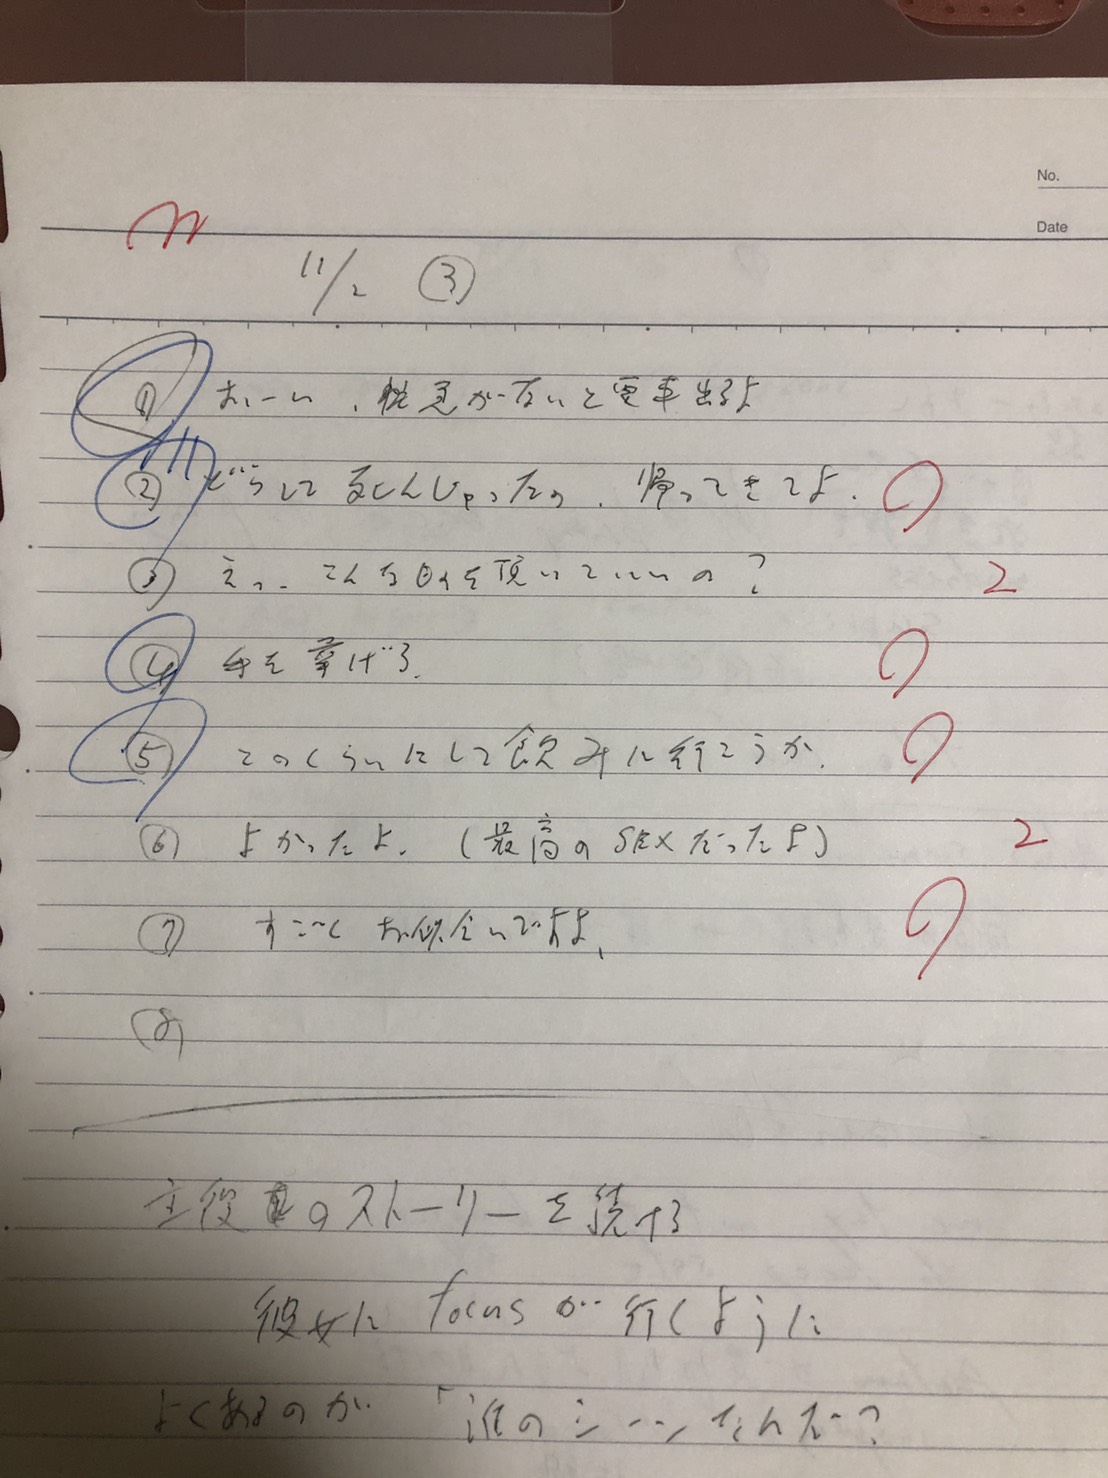 No.
Date
11/2 ③
① おーい、急がないと電車出るよ
② どうして死んじゃったの、帰ってきてよ.
③ えっ.. こんな日々を頂いていいの? 2
④ 手を挙げろ.
⑤ このくらいにして飲みに行こうか.
⑥ よかったよ. (最高のSEXだったよ) 2
⑦ すごくお似合いですよ、
⑧
主役のストーリーを続ける
彼女に focus が行くように
よくあるのが 「誰のシーンなんだ?